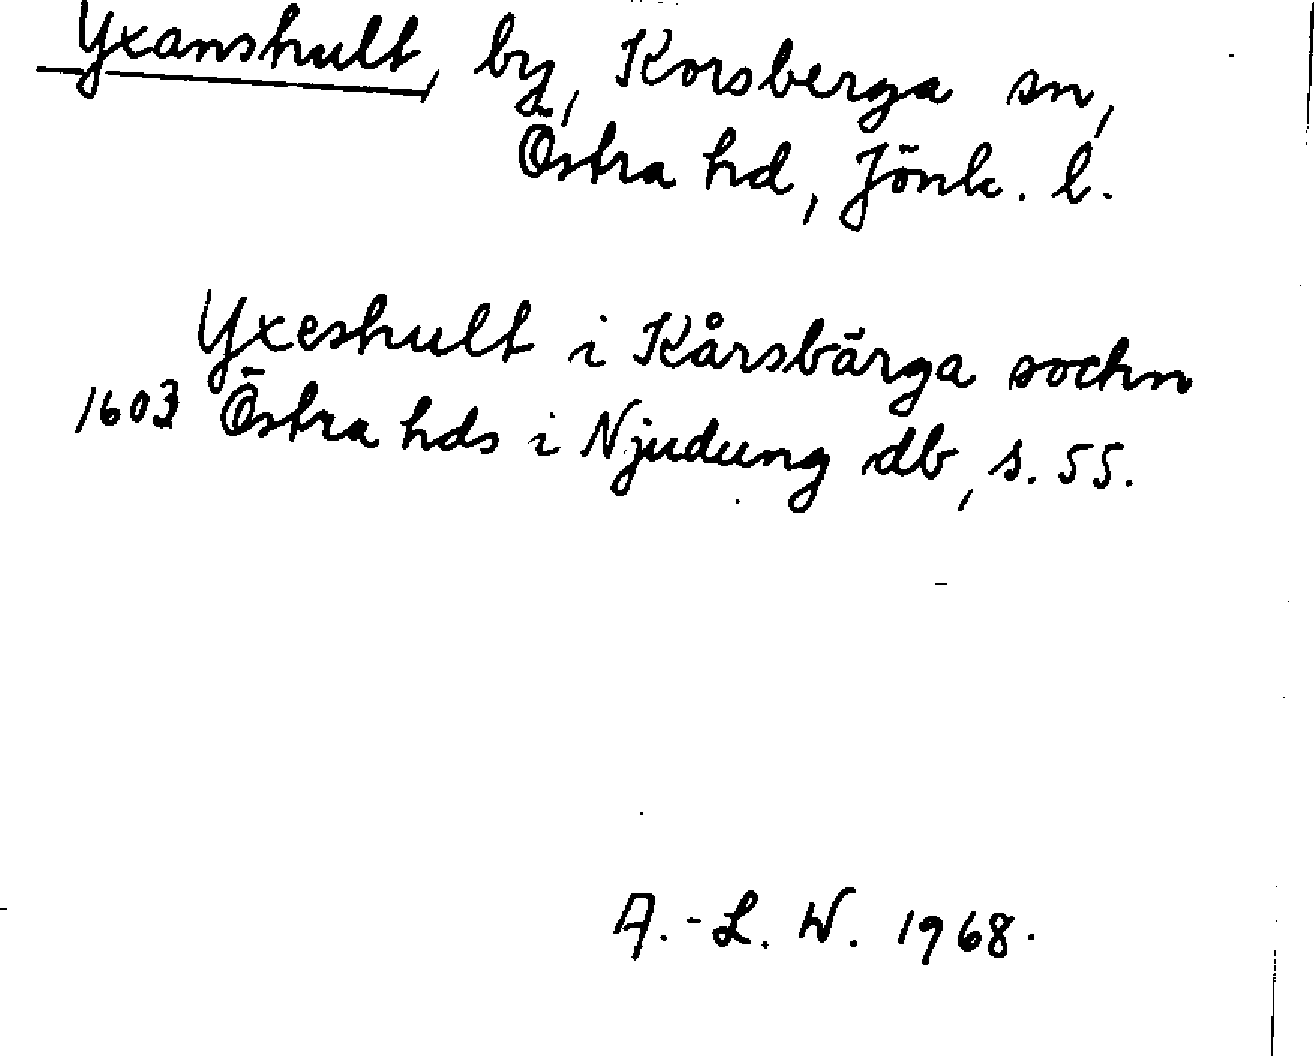 Yxanshult, by, Korsberga sn,
Östra hd, Jönk. l.
Yxeshult i Kårsbärga sochn
1603 Östra hds i Njudung db, s. 55.
A.-L. W. 1968.